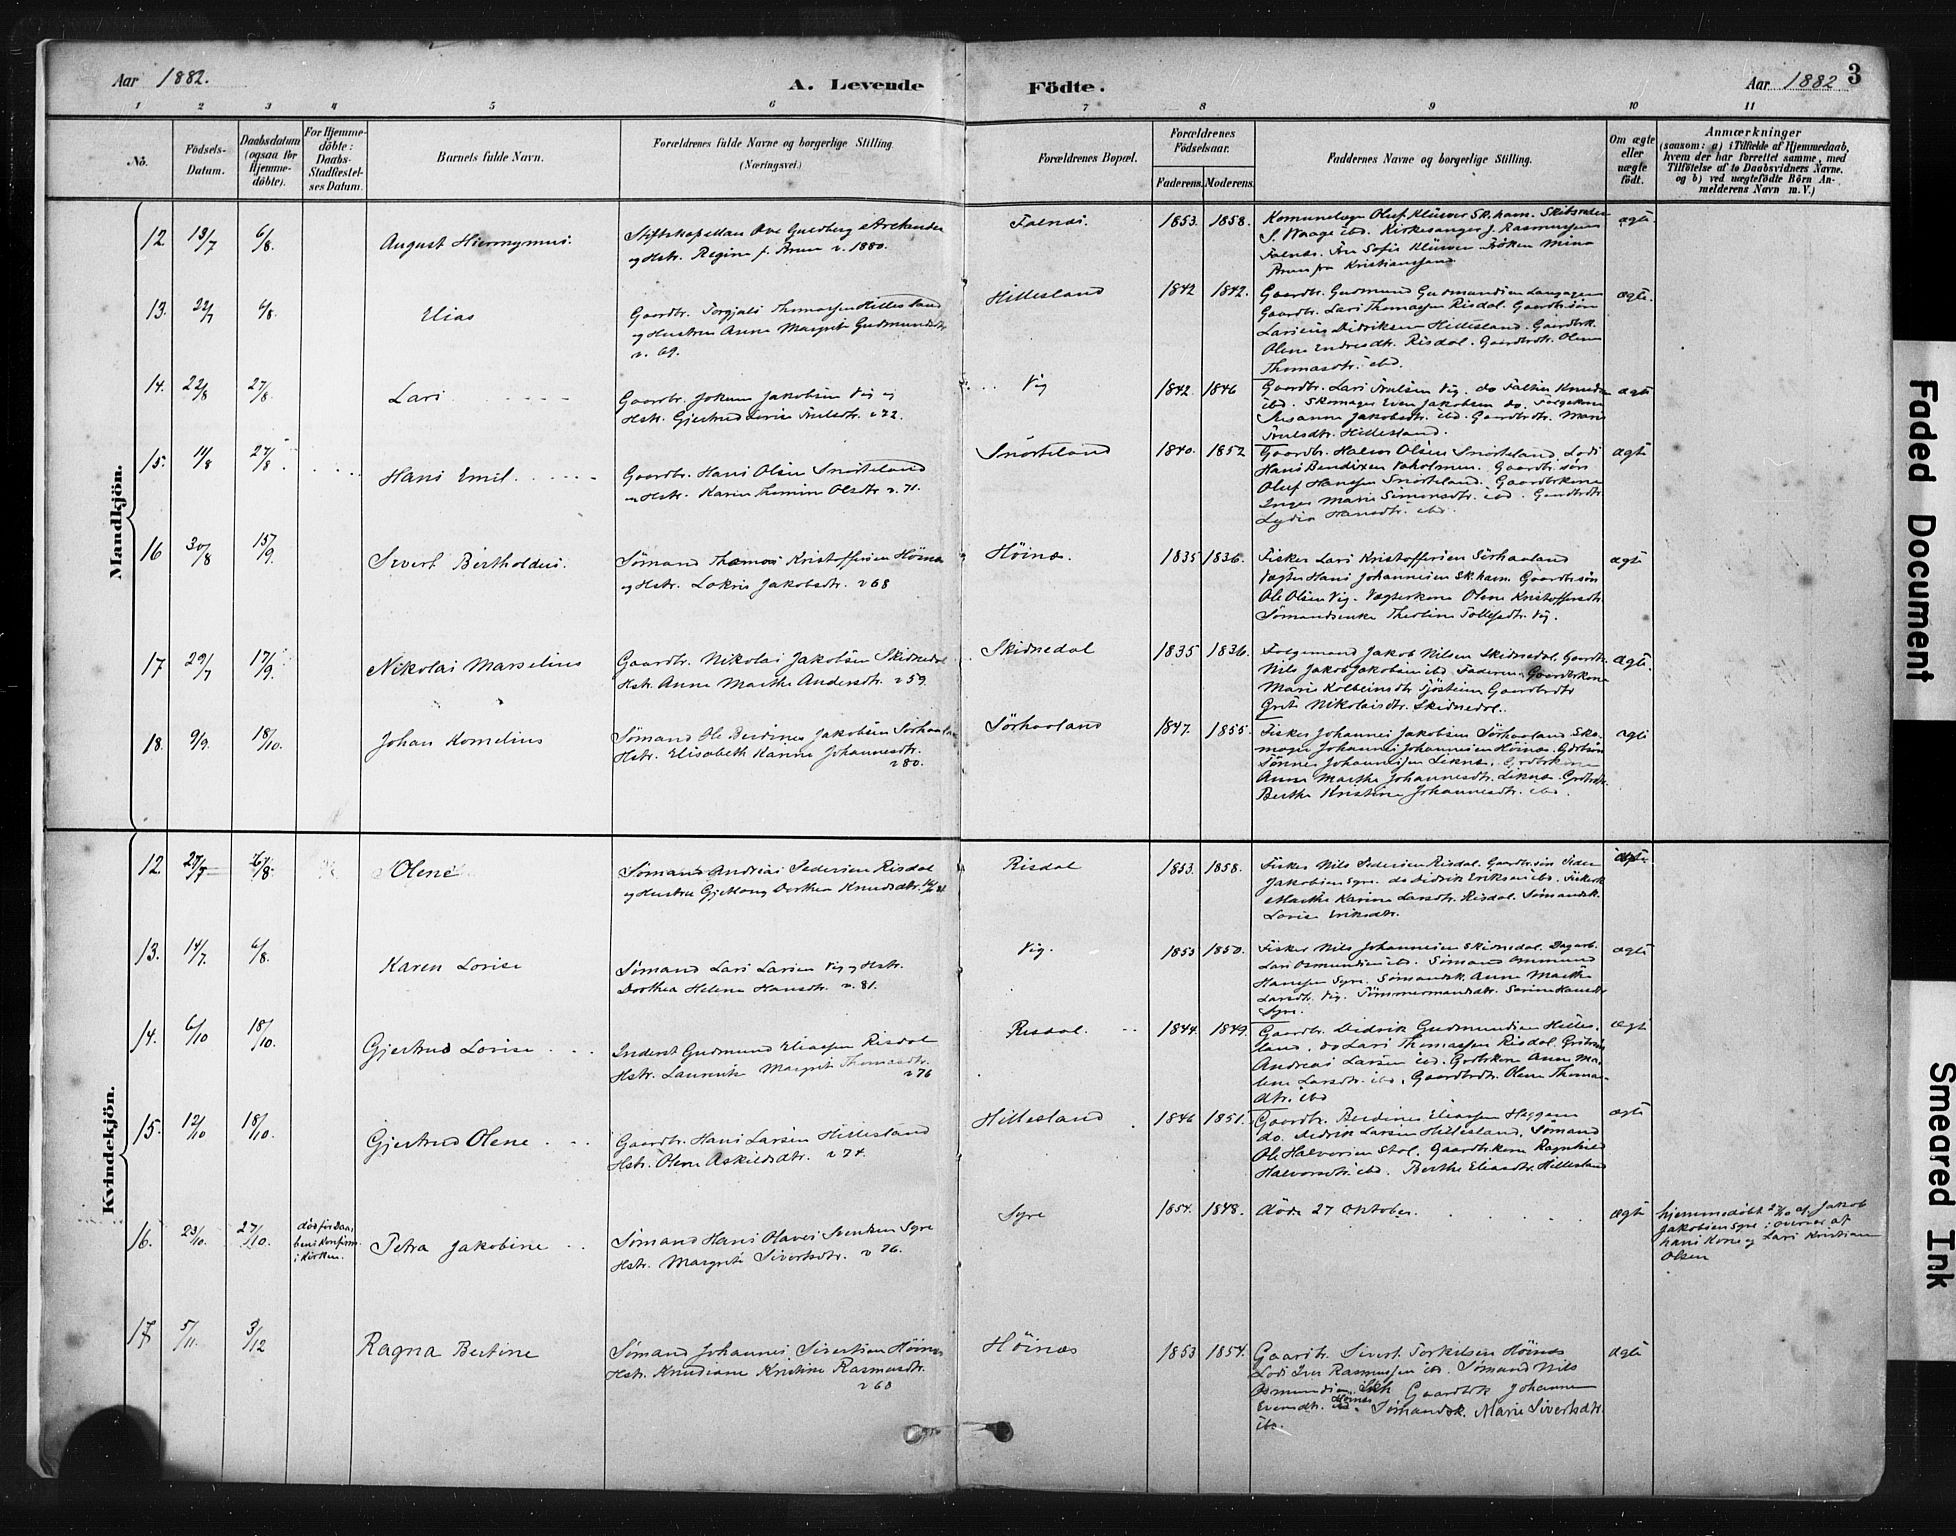 Aar 1882. A. Levende Födte. Aar 1882 3
1 2 3 4 5 6 7 8 9 10 11
No.
Födsels-Datum.
Daabsdatum (ogsaa for Hjemme-döbte).
For Hjemme-döbte: Daabs-Stadfestel-ses Datum.
Barnets fulde Navn.
Forældrenes fulde Navne og borgerlige Stilling. (Næringsvei.)
Forældrenes Bopæl.
Forældrenes Födselsaar.
Faderens. Moderens.
Faddernes Navne og borgerlige Stilling.
Om ægte eller uægte födt.
Anmærkninger
(saasom: a) i Tilfælde af Hjemmedaab,
hvem der har forrettet samme, med
Tilföielse af to Daabsvidners Navne.
og b) ved uægtefödte Börn An-
melderens Navn m. V.)
Mandkjön.
12. 13/7 6/8. August Hieronymus.
og Hstr. Regine f. v. 1880.
Falnæs. 1853. 1858.
S. Waage ibd. Kirkesanger J. Rasmussen
Falnæs. Fru Sofie Fröken Mina
fra Kristianssand
ægte
13. 22/7 6/8. Elias
Gaardbr. Torgjuls Thomassen Hillesland
og Hustru Anne Margrit Gudmundsdtr.
v. 69.
Hillesland 1842 1842.
Gaardbr. Gudmund Gudmundsen
Gaardbr. Lars Thomassen Risdal. Gaardbr.søn
Didriksen Hillesland. Gaardbrk.
Olene Endresdtr. Risdal. Gaardbrdtr. Olene
Thomasdtr. ibd.
ægte.
14. 22/8 27/8. Lars
Gaardbr. Jokum Jakobsen Vig og
Hstr. Gjertrud Lovise v 72.
Vig 1842. 1846
Gaardbr. Lars Vig. do Knudsen
ibd. Skomager Even Jakobsen do.
Susanne Jakobsdtr. ibd. Gaardbrdtr. Marie
Hillesland.
ægte
15. 14/8 27/8. Hans Emil.
Gaardbr. Hans Olsen Snörteland
og Hstr. Karen Tomine Olsdtr v. 71.
Snörteland 1840. 1852
Gaardbr. Halvor Olsen Snörteland. Lods
Hans Bendixen Vaholmen. Gaardbr.søn
Oluf Hansen Snörteland. Gaardbrkone
Inger Marie Simonsdtr. ibd. Gaardbrdtr
Lydia Hansdtr. ibd.
ægte
16 30/8 15/9. Sivert Bertholdus.
Sømand Thomas Kristoffersen Høinæs
og Hstr. Lokris Jakobsdtr. v 68
Höinæs. 1835 1836.
Fisker Lars Kristoffersen Sörhaaland
Vægter Hans Johannesen Sk.havn. Gaardbr.søn
Ole Olsen Vig. Vægterkone Olene Kristoffersdtr.
Sømandsenke Tollefsdtr. Vig.
ægte
17. 29/7 17/9. Nikolai Marselius
Gaardbr. Nikolai Jakobsen Skidnedal
Hstr. Anne Marthe Andersdtr. v 59.
Skidnedal 1835 1836.
Jakob Nilsen Skidnedal. Gaardbr.
Nils Jakob Jakobsen ibd. Faderen. Gaardbrkone
Marie Kolbeinsdtr Gaardbrdtr
Grete Nikolaisdtr. Skidnedal.
ægte.
18. 9/9. 18/10. Johan Kornelius
Sømand Ole Berdines Jakobsen Sörhaaland
Hstr. Elisabeth Karine Johannesdtr.
v 80.
Sörhaaland 1847. 1855.
Fisker Johannes Jakobsen Sörhaaland Sko-
mager Johannes Johannesen Höinæs. Grdbrsøn
Tønnes Johannesen Liknæs. Grdbrkone
Anne Marthe Johannesdtr. Liknæs. Grdbrdtr.
Berthe Kristine Johannesdtr. ibd.
ægte
Kvindekjön.
12. 27/7 6/8. Olene
Sømand Andreas Pedersen Risdal
og Hustru Dorthea Knudsdtr.
Risdal 1853. 1858.
Fisker Nils Pedersen Risdal. Gaardbr.søn Peder
Jakobsen Syre. do Didrik Eriksen ibd. Fiskerk.
Marthe Karine Larsdtr. Risdal. Sømandsk.
Lovise Eriksdtr.
ægte
13. 14/7. 6/8. Karen Lovise
Sømand Lars Larsen Vig og Hstr.
Dorthea Helene Hansdtr. v. 81.
Vig. 1853 1850.
Fisker Nils Johannesen Skidnedal. Dagarb.
Lars Osmundsen ibd. Sømand Ommund
Hansen Syre. Sømandsk. Anne Marthe
Larsdtr. Vig. Tømmermandsdtr. Serine Hansdtr
Syre.
ægte
14. 6/10 18/10. Gjertrud Lovise
Inderst Gudmund Eliassen Risdal
Hstr. Laurentze Margrit Thomasdtr.
v 76
Risdal. 1844. 1849.
Gaardbr. Didrik Gudmundsen Hilles-
land. do Lars Thomassen Risdal. Grdbrsøn
Andreas Larsen ibd. Grdbrkone Anne Ma-
lene Larsdtr. ibd. Gaardbrdtr. Olene Thomas-
dtr. ibd
ægte
15. 12/10 18/10. Gjertrud Olene
Gaardbr. Hans Larsen Hillesland
Hstr. Olene Askildsdtr. v 74.
Hillesland 1846 1851.
Gaardbr. Berdines Eliassen
do. Didrik Larsen Hillesland. Sømand
Ole Halvorsen Stol. Gaardbrkone Ragnhild
Halvorsdtr. ibd. Berthe Eliasdtr. Hillesland
ægte
16. 23/10. 27/10. død før Daa-
bens Konfirm.
i Kirken. Petra Jakobine
Sømand Hans Svendsen Syre
Hstr. Margrete Sivertsdtr. v 76.
Syre 1854. 1848. døde 27 Oktober.
ægte
hjemmedøbt af Jakob
Jakobsen Syre: overvær af
Hans og Lars Kristian
Olsen
17 5/11. 3/12 Ragna Bertine
Sømand Johannes Sivertsen Höinæs
Hstr. Knudiane Kristine Rasmusdtr.
v 68
Höinæs 1853 1854.
Gaardbr. Sivert Torkelsen Höinæs
Lods Iver Rasmussen ibd. Sømand Nils
Osmundsen Skh Gaardbrk Johanne
Evensdtr. Høinæs. Sømandsk. Marie Sivertsdtr.
ibd.
ægte
Faded Document
Smeared Ink